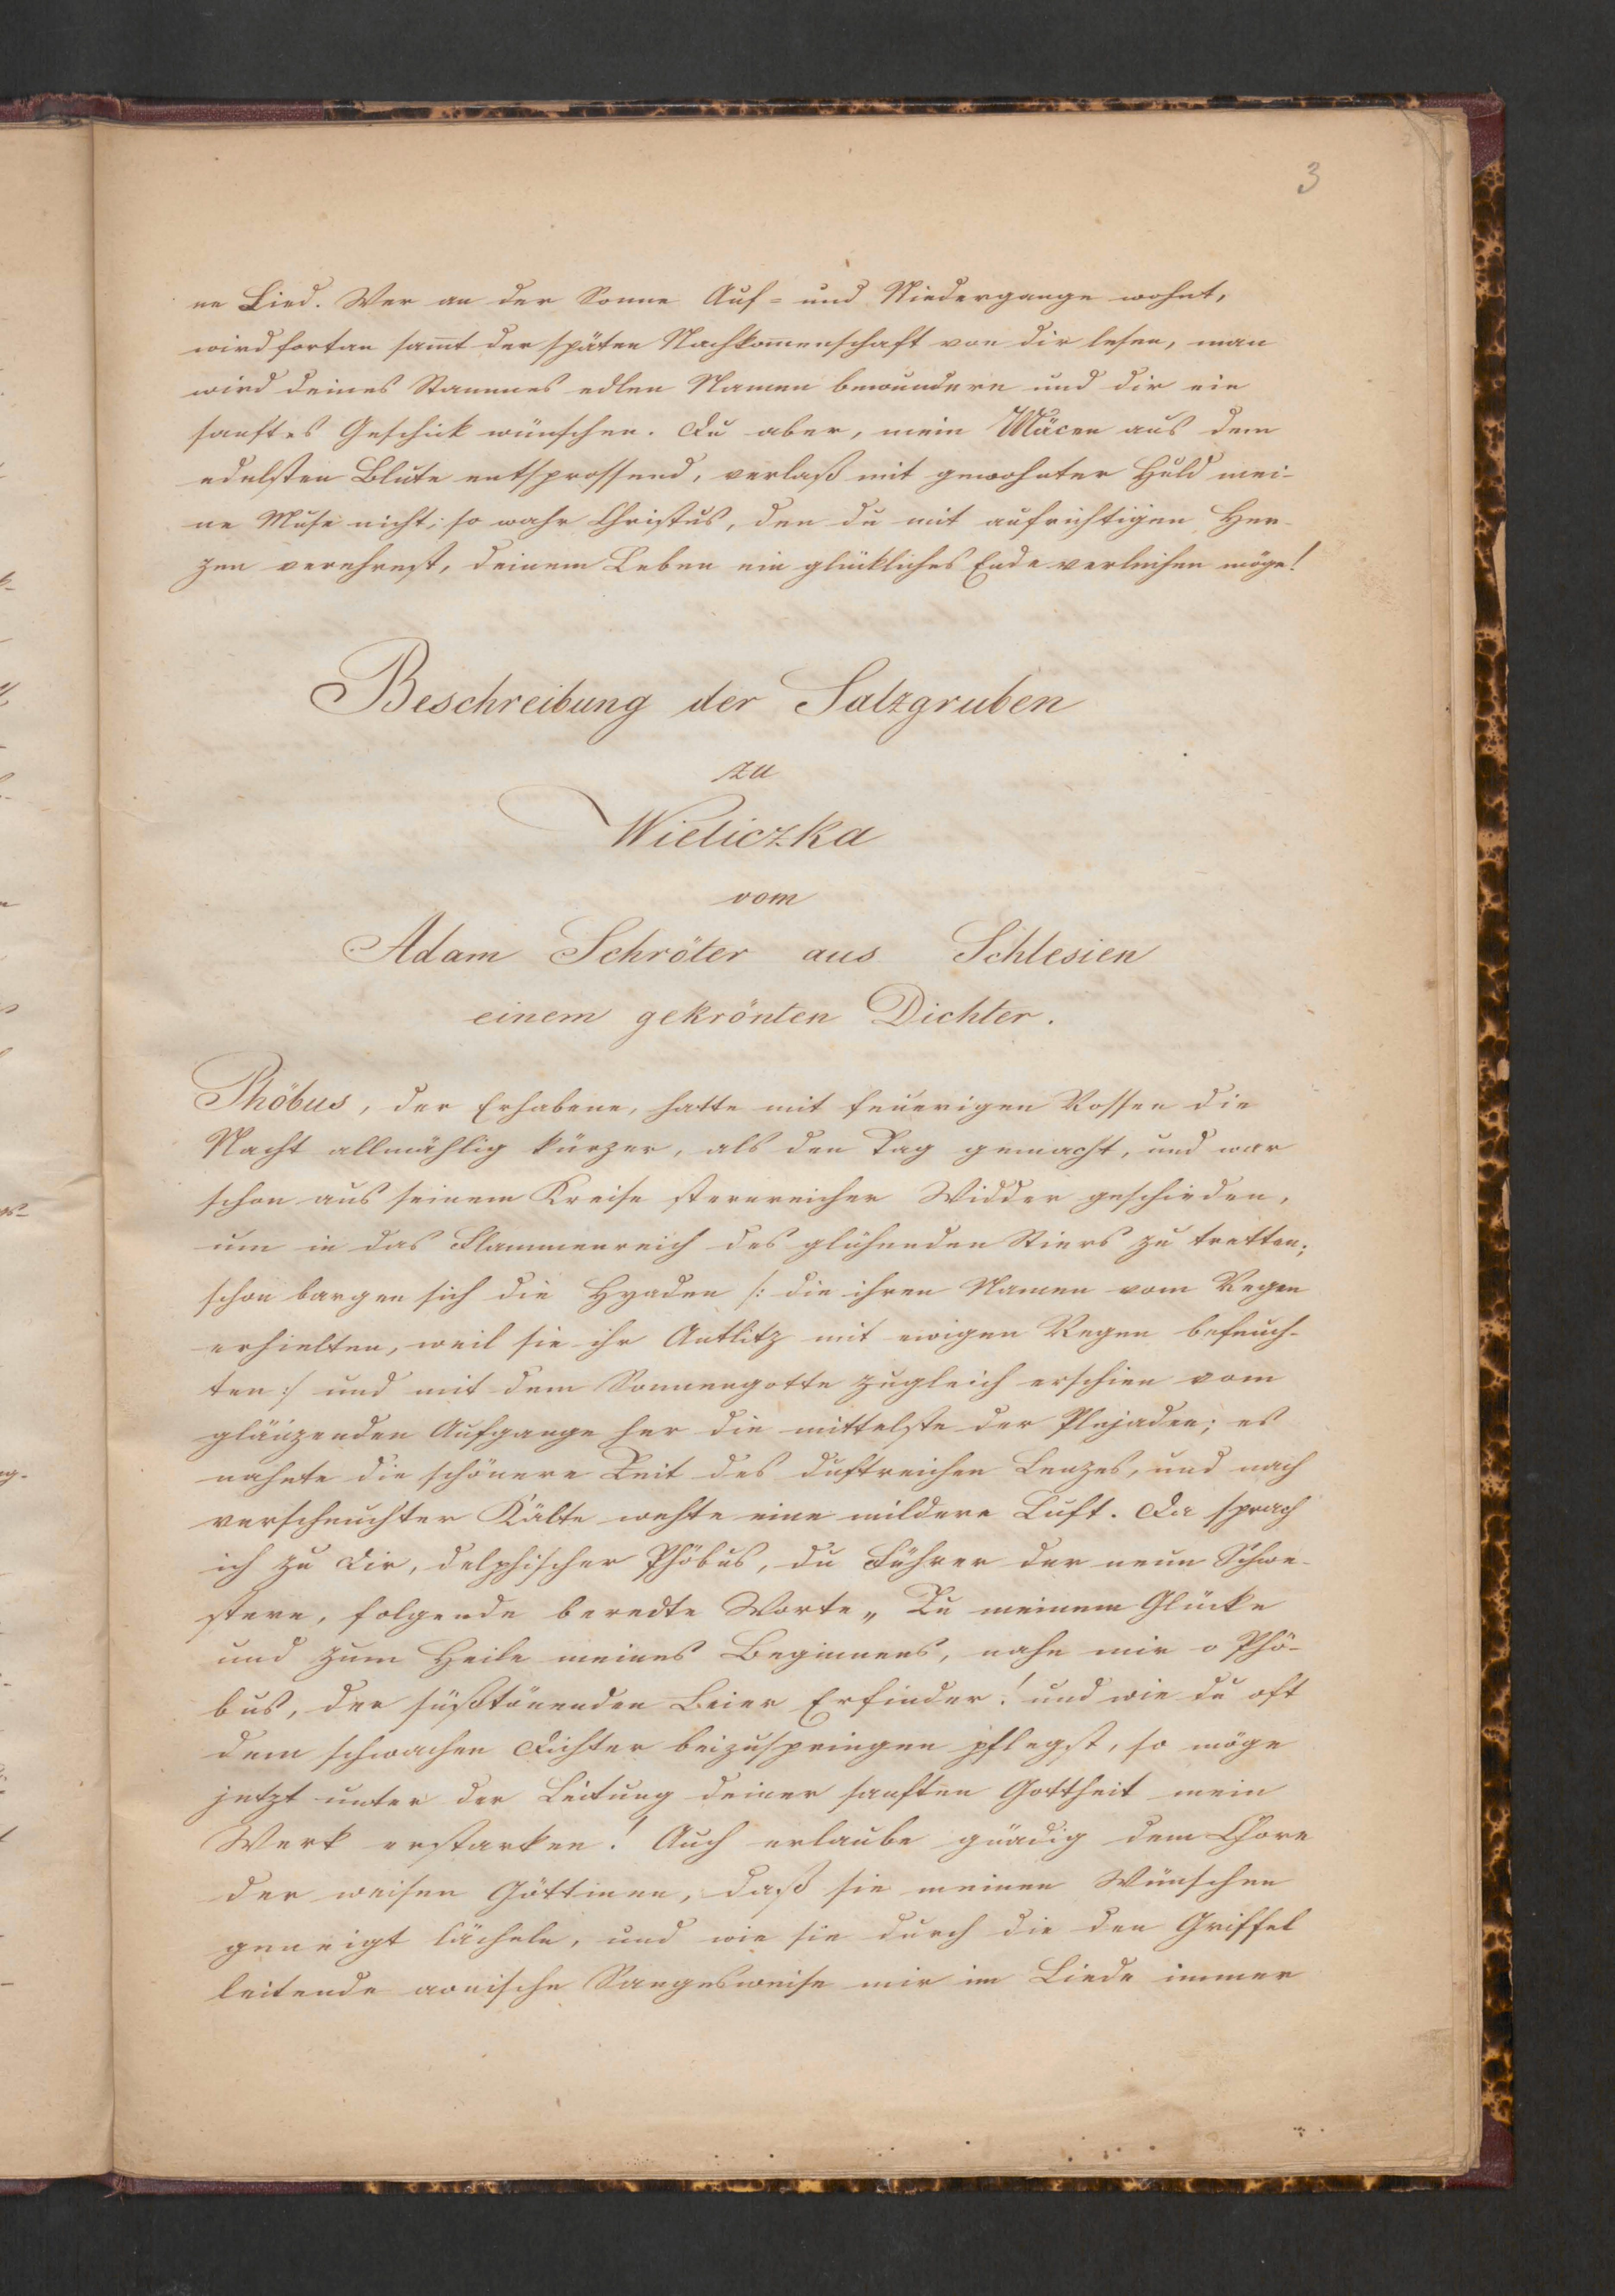 3
ne Lied. Wer an der Sonne Auf= und Niedergange wohnt,
wird fortan sam̄t der späten Nachkom̄enschaft von dir lesen, man
wird deines Stammes edlen Namen bewundern und dir ein
sanftes Geschick wünschen. Du aber, mein Mäcen aus dem
edelsten Blute entsprossend, verlaß mit gewohnter Huld mei-
ne Muse nicht; so wahr Christus, den du mit aufrichtigen Her-
zen verehrest, deinem Leben ein glückliches Ende verleihen möge!
Beschreibung der Salzgruben
zu
Wieliczka
vom
Adam Schröter aus Schlesien
einem gekrönten Dichter.
Phöbus, der Erhabene, hatte mit feuerigen Rossen die
Nacht allmählig kürzer, als den Tag gemacht, und war
schon aus seinem Kreise sternreicher Widder geschieden,
um in das Flammenreich des glühenden Stiers zu tretten;
schon bargen sich die Hyaden /: die ihren Namen vom Regen
erhielten, weil sie ihr Antlitz mit ewigen Regen befeuch-
ten :/ und mit dem Sonnengotte zugleich erschien vom
glänzenden Aufgange her die mittelste der Plejaden; es
nahete die schönere Zeit des duftreichen Lenzes, und nach
verscheuchter Kälte wehte eine mildere Luft. Da sprach
ich zu Dir, delphischer Phöbus, du Führer der neun Schwe-
stern, folgende beredte Worte „ Zu meinem Glücke
und zum Heile meines Beginnens, nahe mir o Phö-
bus, der süßtönenden Leier Erfinder! und wie du oft
dem schwachen Dichter beizuspringen pflegst, so möge
jetzt unter der Leitung deiner sanften Gottheit mein
Werk erstarken! Auch erlaube gnädig dem Chore
der weisen Göttinen, daß sie meinen Wünschen
geneigt lächeln, und wie sie durch die den Griffel
leitende aonische Sangesweise mir im Liede immer